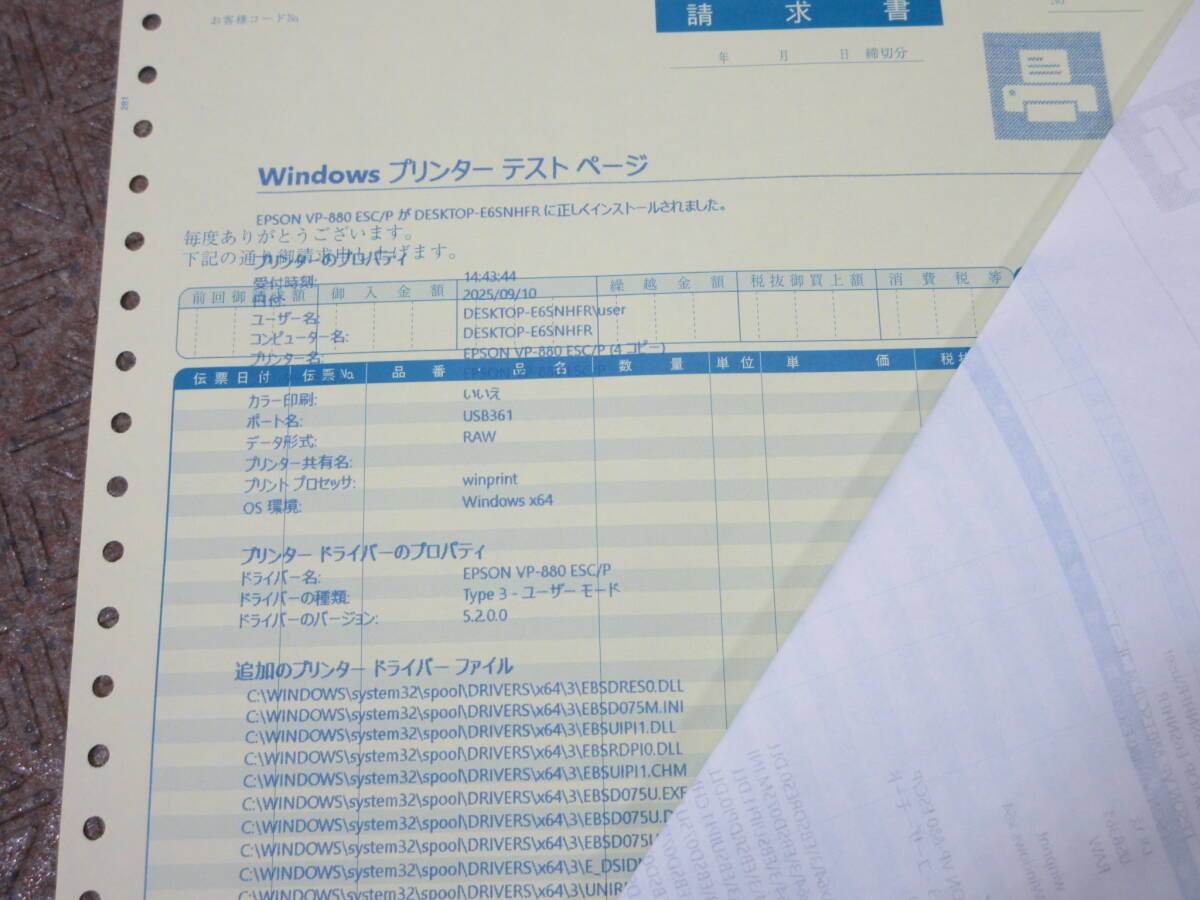 お客様コード№
請求書
№
年 月 日 締切分
Windows プリンター テスト ページ
EPSON VP-880 ESC/P が DESKTOP-E6SNHFR に正しくインストールされました。
毎度ありがとうございます。
下記の通り御請求申し上げます。
プリンターのプロパティ
受付時刻: 14:43:44
日付: 2025/09/10
前回御請求額 御入金額 繰越金額 税抜御買上額 消費税等
ユーザー名: DESKTOP-E6SNHFR\user
コンピューター名: DESKTOP-E6SNHFR
プリンター名: EPSON VP-880 ESC/P (4 コピー)
EPSON VP-880 ESC/P
伝票日付 伝票№ 品番・品名 数量 単位 単価 税抜
カラー印刷: いいえ
ポート名: USB361
データ形式: RAW
プリンター共有名:
プリント プロセッサ: winprint
OS 環境: Windows x64
プリンター ドライバーのプロパティ
ドライバー名: EPSON VP-880 ESC/P
ドライバーの種類: Type 3 - ユーザー モード
ドライバーのバージョン: 5.2.0.0
追加のプリンター ドライバー ファイル
C:\WINDOWS\system32\spool\DRIVERS\x64\3\EBSDRES0.DLL
C:\WINDOWS\system32\spool\DRIVERS\x64\3\EBSD075M.INI
C:\WINDOWS\system32\spool\DRIVERS\x64\3\EBSUIPI1.DLL
C:\WINDOWS\system32\spool\DRIVERS\x64\3\EBSRDPI0.DLL
C:\WINDOWS\system32\spool\DRIVERS\x64\3\EBSUIPI1.CHM
C:\WINDOWS\system32\spool\DRIVERS\x64\3\EBSD075U.EXE
C:\WINDOWS\system32\spool\DRIVERS\x64\3\EBSD075U.D
C:\WINDOWS\system32\spool\DRIVERS\x64\3\EBSD075U
C:\WINDOWS\system32\spool\DRIVERS\x64\3\E_DSIDM
C:\WINDOWS\system32\spool\DRIVERS\x64\3\UNIRI